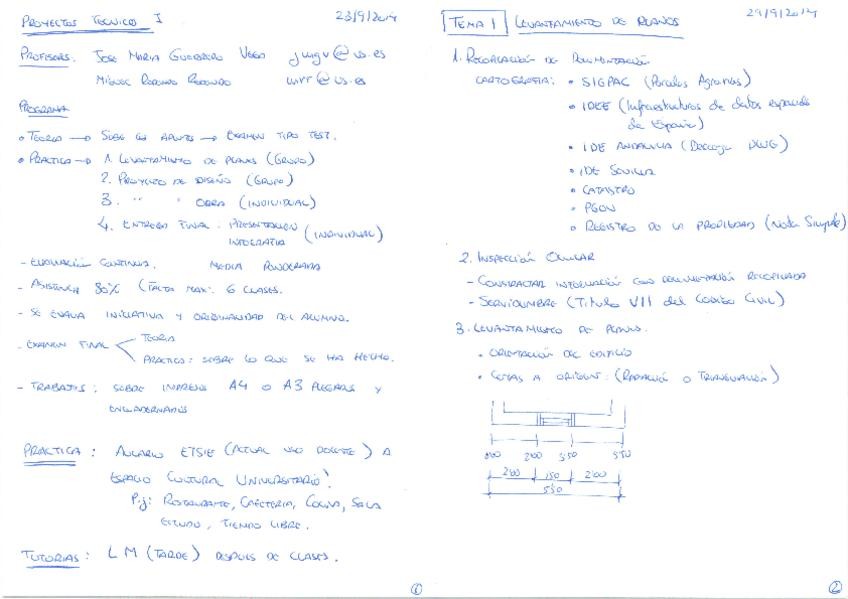 PROYECTOS TECNICOS I 23/9/2014
PROFESORES: JOSE MARIA GUERRERO VEGA jmgv@us.es
MIGUEL REDONDO REDONDO @us.es
PROGRAMA
• TEORIA → SUBE LOS APUNTES → EXAMEN TIPO TEST.
• PRACTICA → 1. LEVANTAMIENTO DE PLANOS (GRUPO)
2. PROYECTO DE DISEÑO (GRUPO)
3. " " OBRA (INDIVIDUAL)
4. ENTREGA FINAL: PRESENTACION
(INDIVIDUAL)
- EVALUACIÓN CONTINUA. MEDIA PONDERADA
- ASISTENCIA 80% (FALTA MAX: 6 CLASES.
- SE EVALUA INICIATIVA Y ORIGINALIDAD DEL ALUMNO.
- EXAMEN FINAL < TEORIA
PRACTICA: SOBRE LO QUE SE HA HECHO.
- TRABAJOS: SOBRE IMPRESO A4 O A3 Y
ENCUADERNADOS
PRÁCTICA: AULARIO ETSIE (ACTUAL USO DOCENTE) A
ESPACIO CULTURAL UNIVERSITARIO.
P.j: RESTAURANTE, CAFETERIA, COCINA, SALA
ESTUDIO, TIEMPO LIBRE.
TUTORIAS: L M (TARDE) DESPUES DE CLASES.
1
TEMA 1 LEVANTAMIENTO DE PLANOS 29/9/2014
1. RECOPILACIÓN DE DOCUMENTACIÓN
CARTOGRAFIA: • SIGPAC (Parcelas Agrarias)
• IDEE (Infraestructuras de datos
de España)
• IDE ANDALUCIA (Descarga DWG)
• IDE SEVILLA
• CATASTRO
• PGOU
• REGISTRO DE LA PROPIEDAD (Nota Simple)
2. INSPECCIÓN OCULAR
- CONTRASTAR INFORMACIÓN CON DOCUMENTACIÓN RECOPILADA
- SERVIDUMBRE (Titulo VII del Codigo Civil)
3. LEVANTAMIENTO DE PLANOS.
• ORIENTACIÓN DEL EDIFICIO
• COTAS A ORIGEN: (RADIACIÓN O TRIANGULACIÓN)
0'00 2'00 3'50 5'50
2'00 1'50 2'00
5'50
2